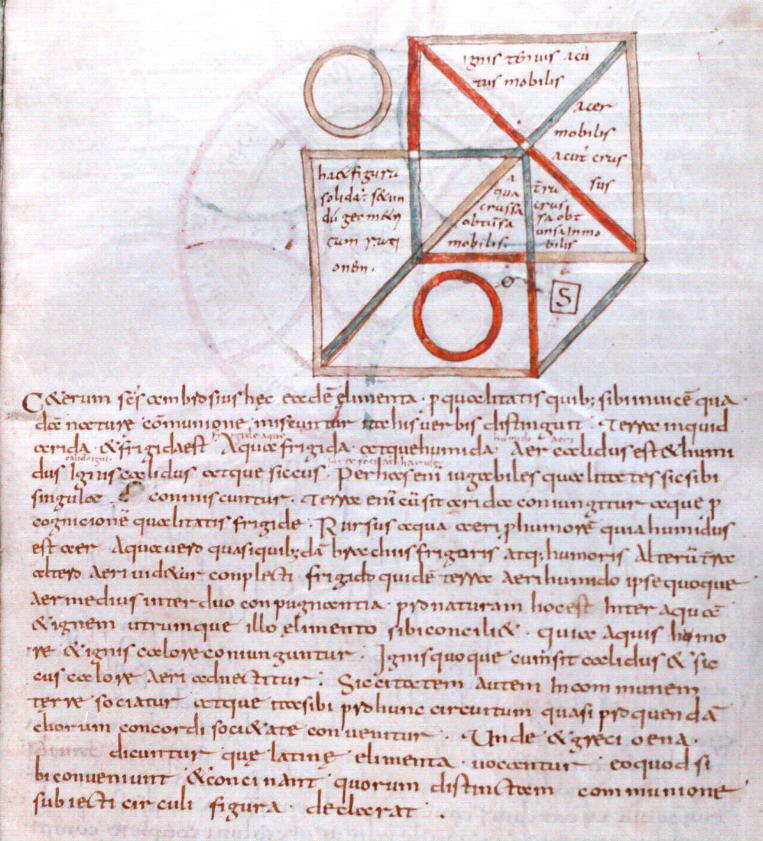 ignis tenuis acu
tus mobilis
acer
mobilis
acut crus
sus
haec figura
solida e secun
du geometri
cum rati
onem.
a
qua
crassa
obtunsa
mobilis.
terra
cras
sa obt
unsa inmo
bilis
S
Ceterum scs ambrosius hec eade elimenta · p qualitatis quib; sibi invice qua
da nature comunione miscuntur ita his verbis distinguit · Terra inquid
arida · & frigida est Aqua frigida · atque humida · Aer calidus est & humi
dus Ignis calidus atque siccus · Per has eni iugabiles qualitates sic sibi
singula commiscuntur · Terra eni cu sit arida coniungitur aque p
cognicione qualitatis frigide · Rursus aqua aeri p humore quia humidus
est aer Aqua vero quasi quib;da brachiis frigoris atq; humoris Alteru terra
altero aeri videtur conplecti · frigido quide terra Aeri humido ipse quoque
aer medius inter duo conpugnantia · pro naturam hoc est Inter aqua
& ignem utrumque illo elimento sibi conciliat · quia Aquis humo
re & ignis calore coniunguntur · Ignis quoque cum sit calidus & sic
cus calore Aeri adnectitur · Siccitatem autem In communem
terre sociatur atque ita sibi pro hunc circuitum quasi pro quenda
chorum concordi societate conveniunt · Unde & greci oena ·
dicuntur que latine elimenta vocantur eo quod si
bi conveniunt & concinant quorum distinctam communione
subiecti circuli figura · declarat ·